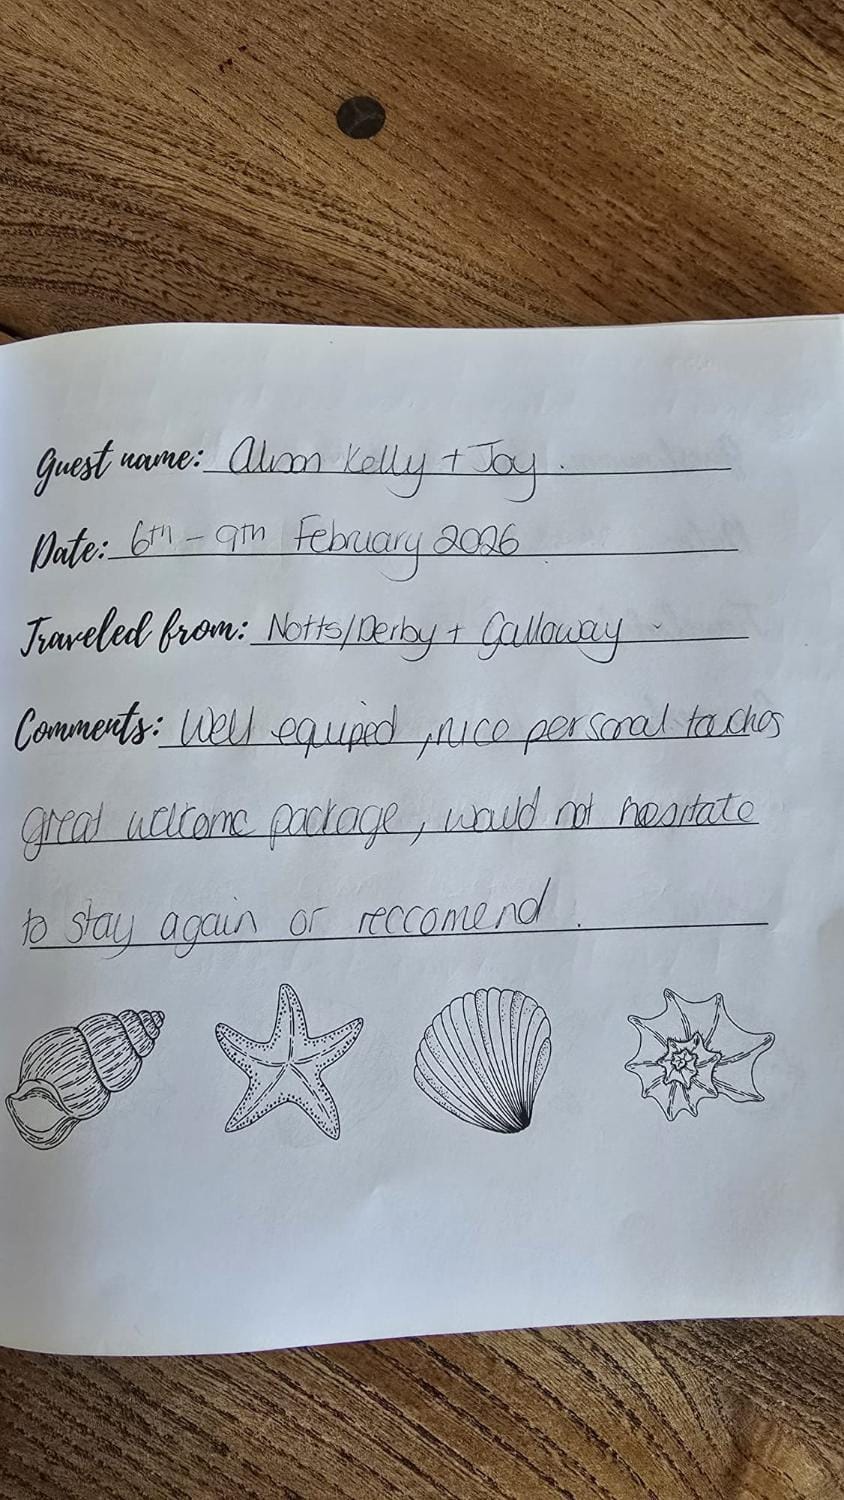 Guest name: Alison Kelly + Joy .
Date: 6th - 9th February 2026
Traveled from: Notts/Derby + Galloway
Comments: Well equiped , nice personal touches
great welcome package, would not hesitate
to stay again or reccomend .